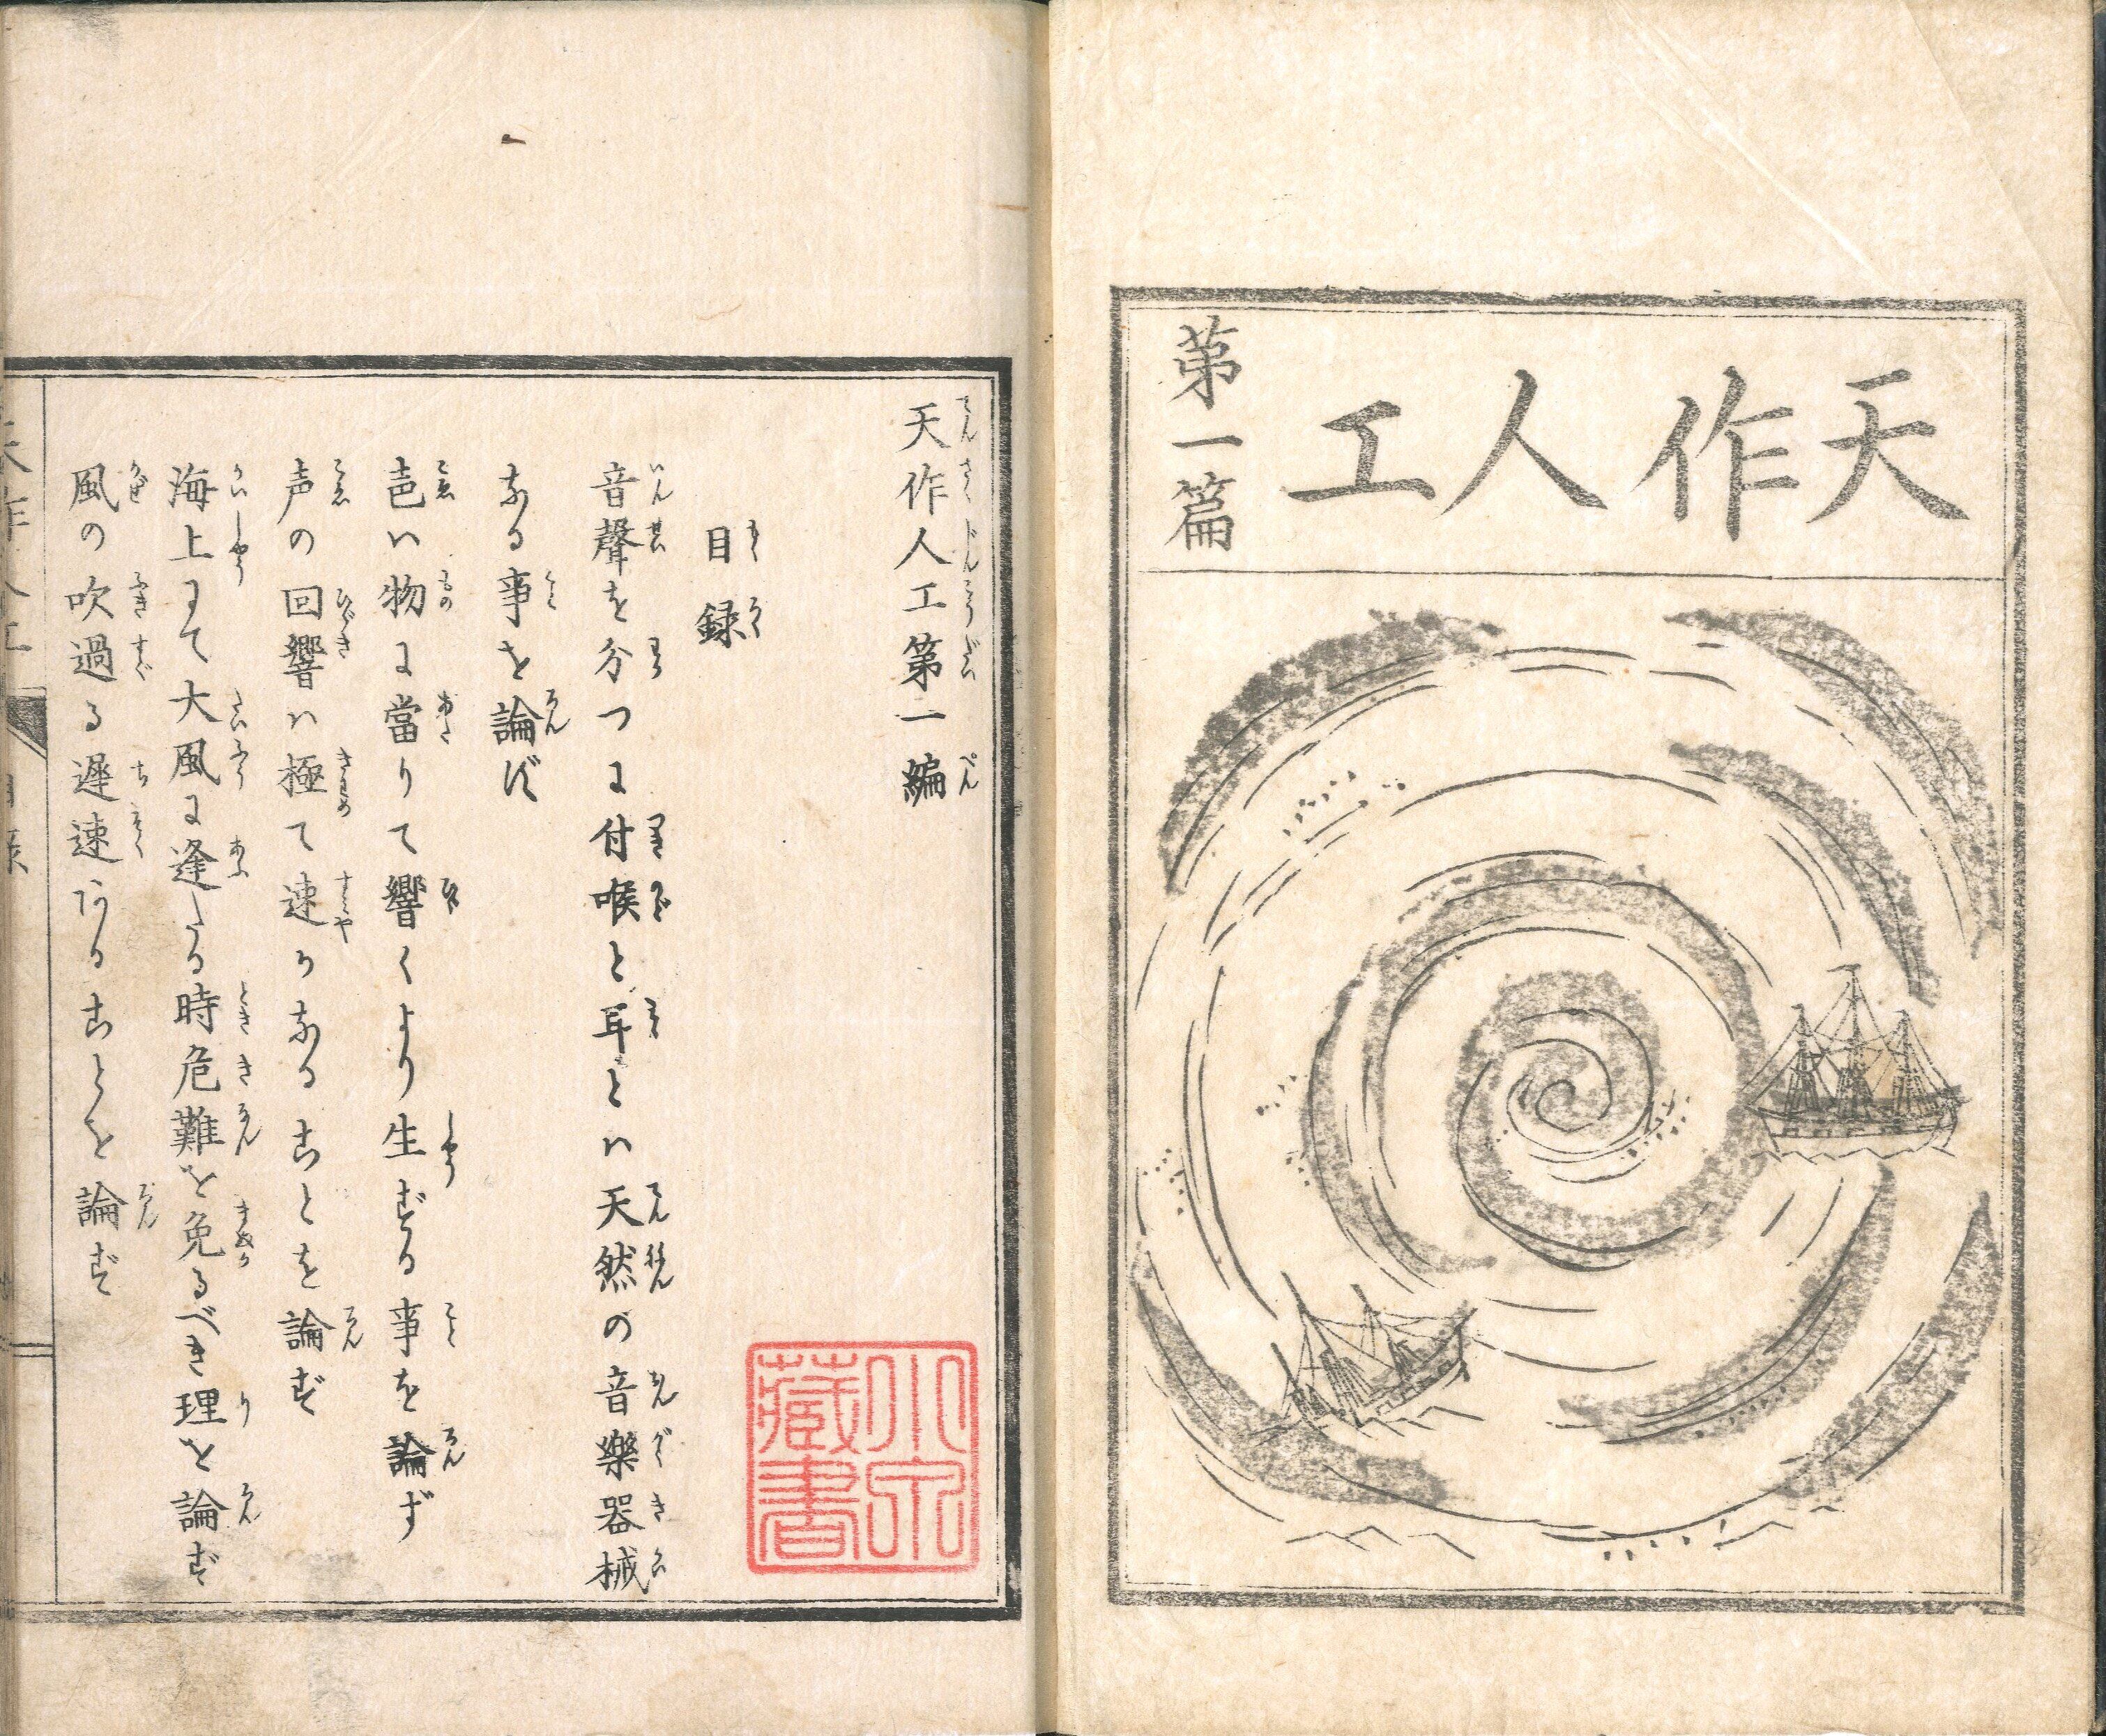 天作人工
第一篇
天作人工第一編
目録
音聲を分つに付喉と耳とハ天然の音樂器械
なる事を論ず
声ハ物に當りて響くより生ずる事を論ず
声の回響ハ極て速かなることを論ず
海上にて大風に逢たる時危難を免るべき理を論ず
風の吹過る遅速あることを論ず
藏書